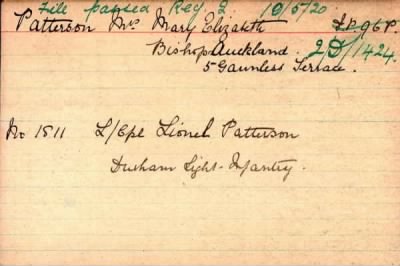 File passed Reg. 2 10/5/20
Patterson Mrs Mary Elizabeth
Bishop Auckland. 2D/1424.
5 Gaunless Terrace.
No 1511 L/Cpl Lionel Patterson
Durham Light Infantry.